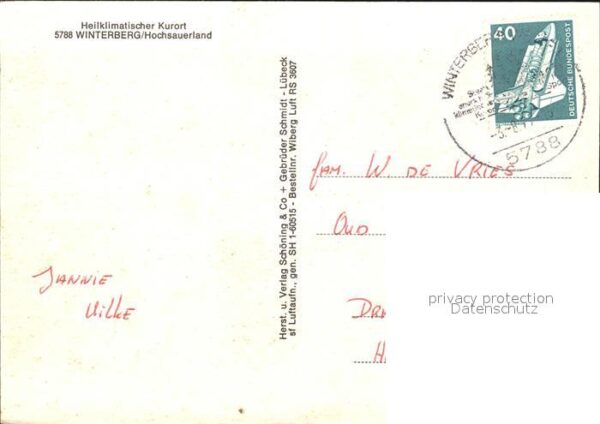 Heilklimatischer Kurort
5788 WINTERBERG/Hochsauerland
Herst. u. Verlag Schöning & Co + Gebrüder Schmidt - Lübeck
sf Luftaufn., gen. SH 1-60515 - Bestellnr. Wiberg Luft RS 3607
40
DEUTSCHE BUNDESPOST
WINTERBE
5788
FAM. W DE VRIES
OUD
JANNIE
Wilke
privacy protection
Datenschutz